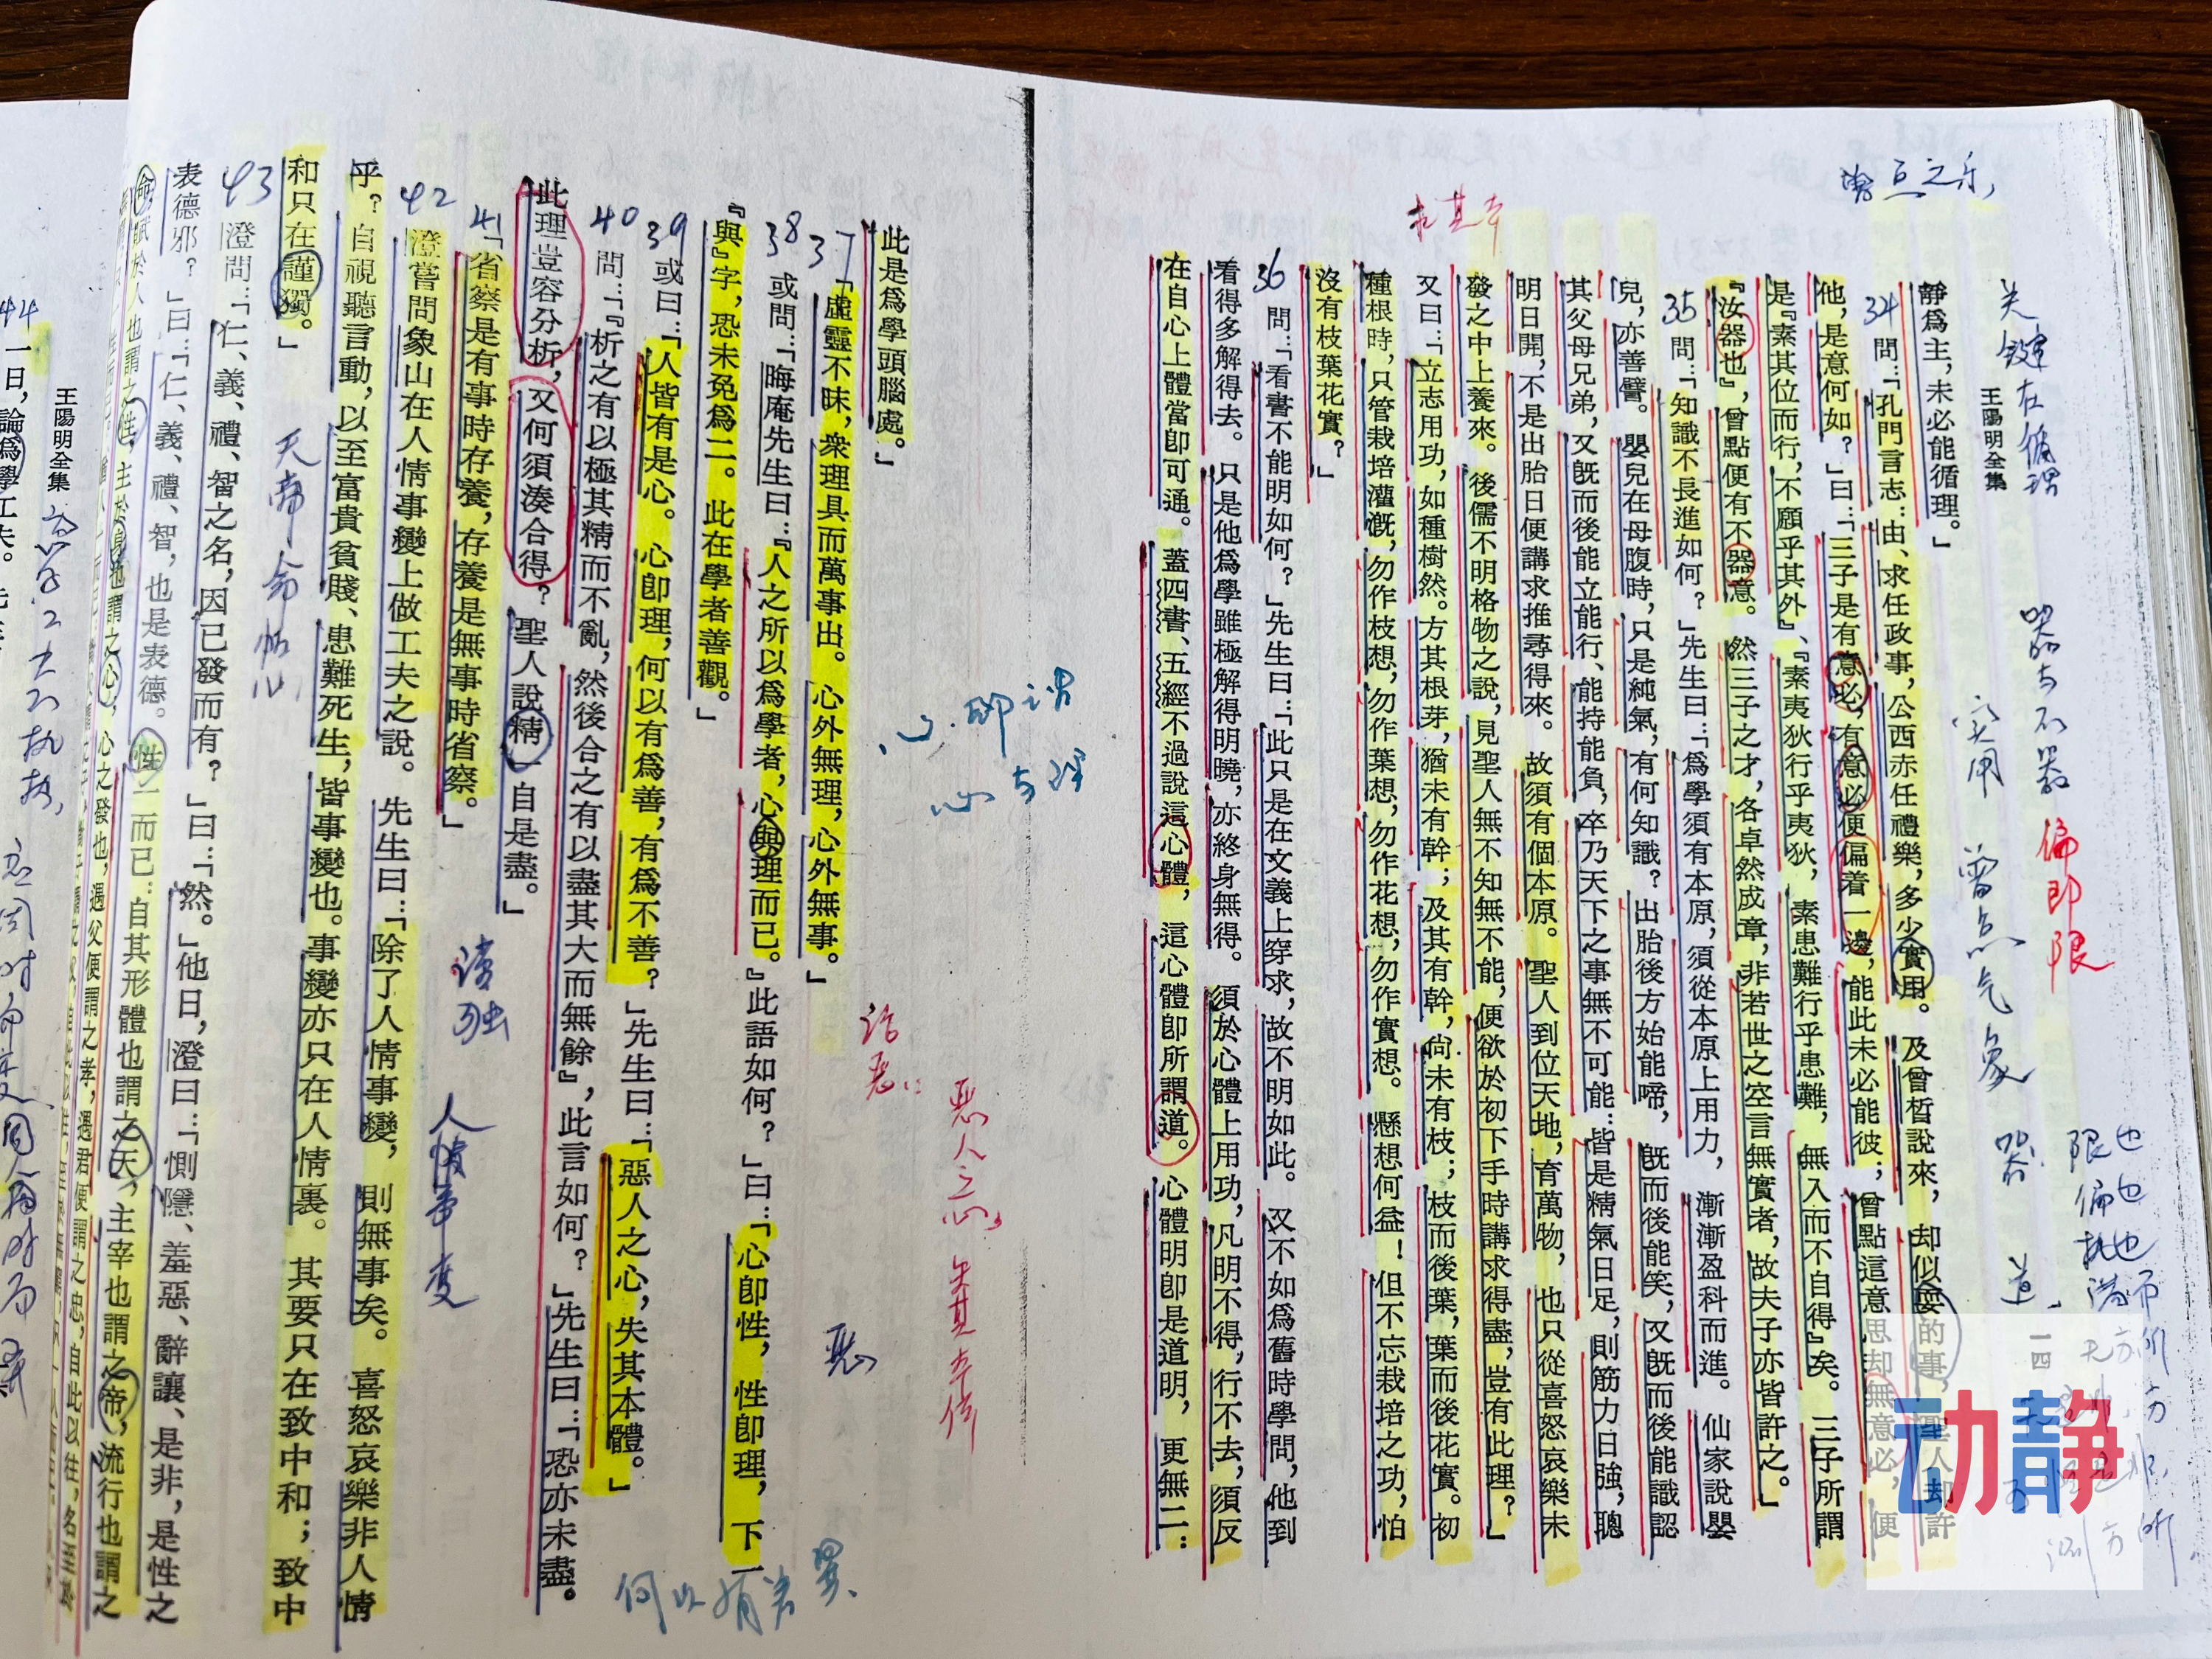 靜爲主，未必能循理。」
34 問：「孔門言志：由、求任政事，公西赤任禮樂，多少實用。及曾皙說來，却似耍的事，聖人却許
他，是意何如？」曰：「三子是有意必，有意必便偏着一邊，能此未必能彼；曾點這意思却無意必，便
是『素其位而行，不願乎其外』、『素夷狄行乎夷狄，素患難行乎患難，無入而不自得』矣。三子所謂
『汝器也』，曾點便有不器意。然三子之才，各卓然成章，非若世之空言無實者，故夫子亦皆許之。」
35 問：「知識不長進如何？」先生曰：「爲學須有本原，須從本原上用力，漸漸盈科而進。仙家說嬰
兒，亦善譬。嬰兒在母腹時，只是純氣，有何知識？出胎後方始能啼，既而後能笑，又既而後能識認
其父母兄弟，又既而後能立能行、能持能負，卒乃天下之事無不可能：皆是精氣日足，則筋力日強，聰
明日開，不是出胎日便講求推尋得來。故須有個本原。聖人到位天地，育萬物，也只從喜怒哀樂未
發之中上養來。後儒不明格物之說，見聖人無不知無不能，便欲於初下手時講求得盡，豈有此理？」
又曰：「立志用功，如種樹然。方其根芽，猶未有幹；及其有幹，尚未有枝；枝而後葉，葉而後花實。初
種根時，只管栽培灌漑，勿作枝想，勿作葉想，勿作花想，勿作實想。懸想何益！但不忘栽培之功，怕
沒有枝葉花實？」
36 問：「看書不能明如何？」先生曰：「此只是在文義上穿求，故不明如此。又不如爲舊時學問，他到
看得多解得去。只是他爲學雖極解得明曉，亦終身無得。須於心體上用功，凡明不得，行不去，須反
在自心上體當卽可通。蓋四書、五經不過說這心體，這心體卽所謂道。心體明卽是道明，更無二：
此是爲學頭腦處。」
37 「虛靈不昧，衆理具而萬事出。心外無理，心外無事。」
38 或問：「晦庵先生曰：『人之所以爲學者，心與理而已。』此語如何？」曰：「心卽性，性卽理，下一
『與』字，恐未免爲二。此在學者善觀。」
39 或曰：「人皆有是心。心卽理，何以有爲善，有爲不善？」先生曰：「惡人之心，失其本體。」
40 問：「『析之有以極其精而不亂，然後合之有以盡其大而無餘』，此言如何？」先生曰：「恐亦未盡。
此理豈容分析，又何須湊合得？聖人說精一自是盡。」
41 「省察是有事時存養，存養是無事時省察。」
42 澄嘗問象山在人情事變上做工夫之說。先生曰：「除了人情事變，則無事矣。喜怒哀樂非人情
乎？自視聽言動，以至富貴貧賤、患難死生，皆事變也。事變亦只在人情裏。其要只在致中和；致中
和只在謹獨。」
43 澄問：「仁、義、禮、智之名，因已發而有？」曰：「然。」他日，澄曰：「惻隱、羞惡、辭讓、是非，是性之
表德邪？」曰：「仁、義、禮、智，也是表德。性一而已：自其形體也謂之天，主宰也謂之帝，流行也謂之
命，賦於人也謂之性，主於身也謂之心，心之發也，遇父便謂之孝，遇君便謂之忠，自此以往，名至於
王陽明全集
一四
44 一日，論爲學工夫。
王陽明全集
曾点之乐
求其本
关键在循理
器与不器
偏即限
实用
曾点气象
器
道
限也
偏也
执也
心即谓
心与理
恶人之心
失其本体
恶
何以有善恶
读独
人情事变
天帝命性心
动静